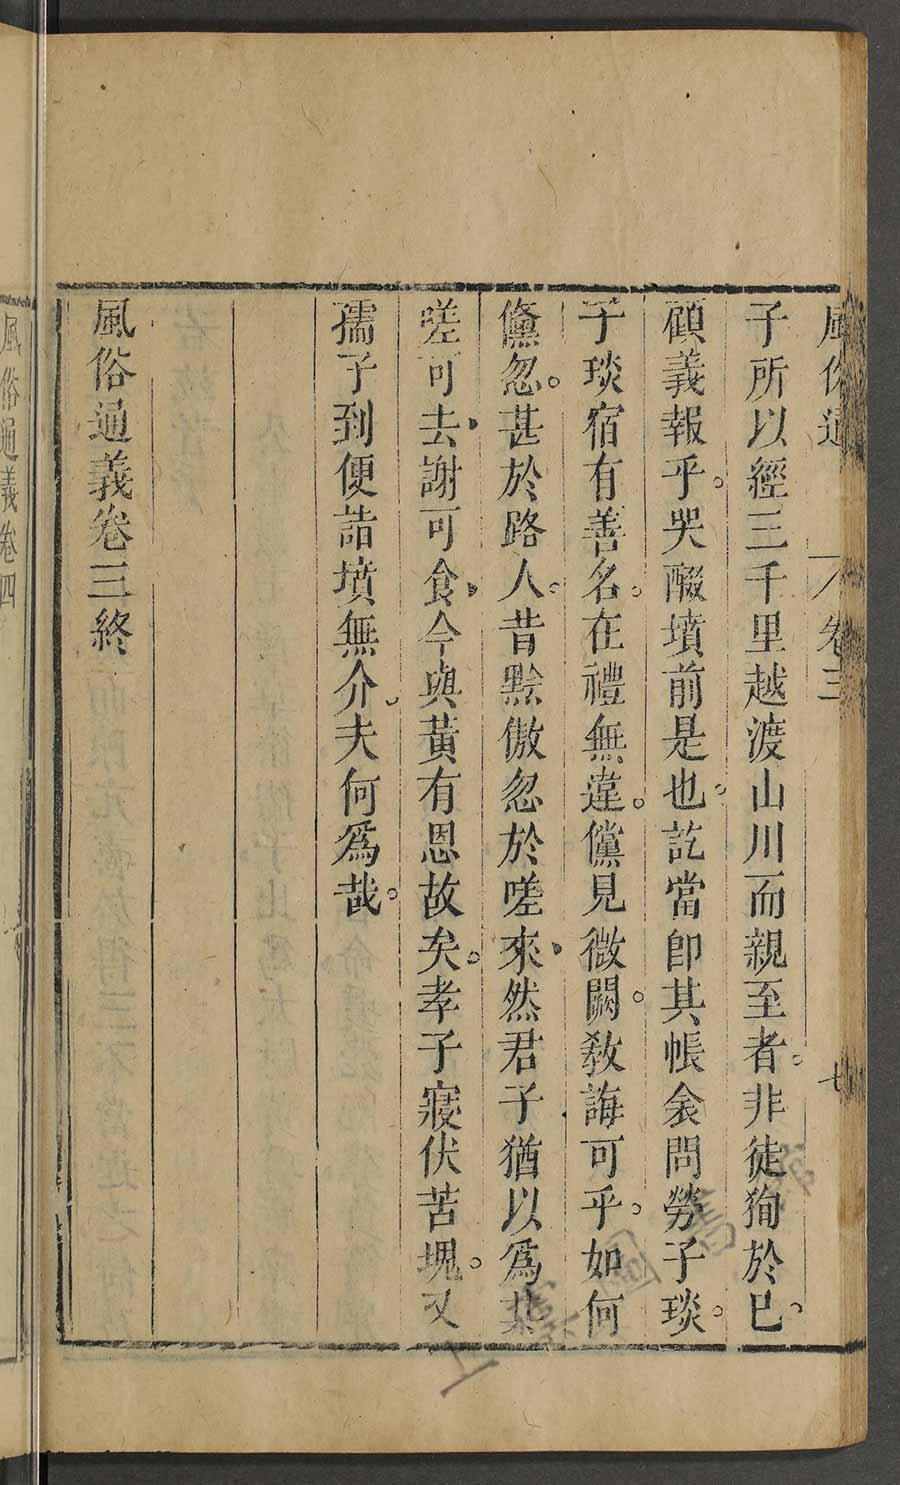 風俗通 卷三 七
子所以經三千里越渡山川而親至者。非徒狥於已。
顧義報乎。哭醊墳前是也。訖當卽其帳衾問勞子琰。
子琰宿有善名。在禮無違。儻見微闕。敎誨可乎。如何
儵忽。甚於路人。昔黔傲忽於嗟來。然君子猶以爲其
嗟可去。謝可食。今與黃有恩故矣。孝子寢伏苫塊。又
孺子到便詣墳無介。夫何爲哉。
風俗通義卷三終
風俗通義卷四